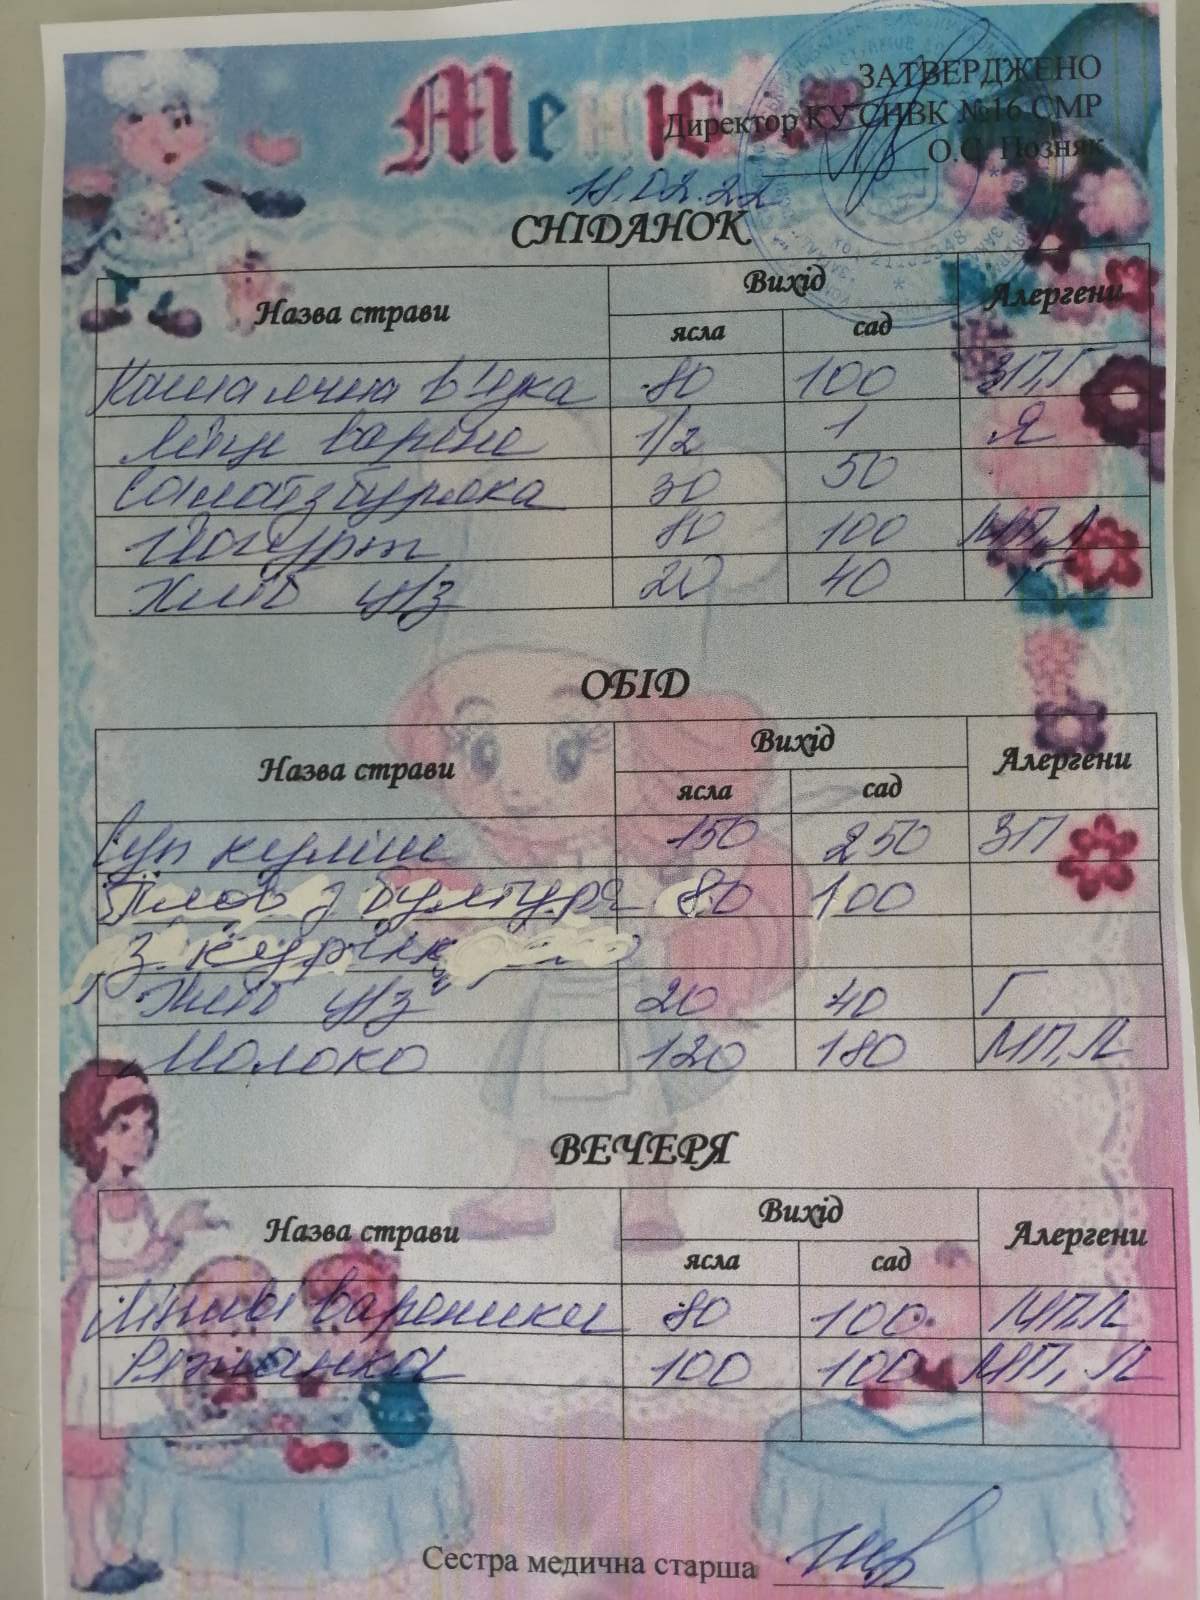 Меню
ЗАТВЕРДЖЕНО
Директор КУ СНВК №16 СМР
О.С. Позняк
18.02.22
СНІДАНОК
Назва страви Вихід Алергени
ясла сад
Каша ячна в'язка 80 100 ЗП,Г
Яйце варене 1/2 1 Я
Салат з буряка 30 50
Йогурт 80 100 МП,Л
Хліб ц/з 20 40 Г
ОБІД
Назва страви Вихід Алергени
ясла сад
Суп куліш 150 250 ЗП
Плов з булгура 80 100
з курк
Хліб ц/з 20 40 Г
Молоко 120 180 МП,Л
ВЕЧЕРЯ
Назва страви Вихід Алергени
ясла сад
Ліниві вареники 80 100 МП,Л
Ряжанка 100 100 МП, Л
Сестра медична старша